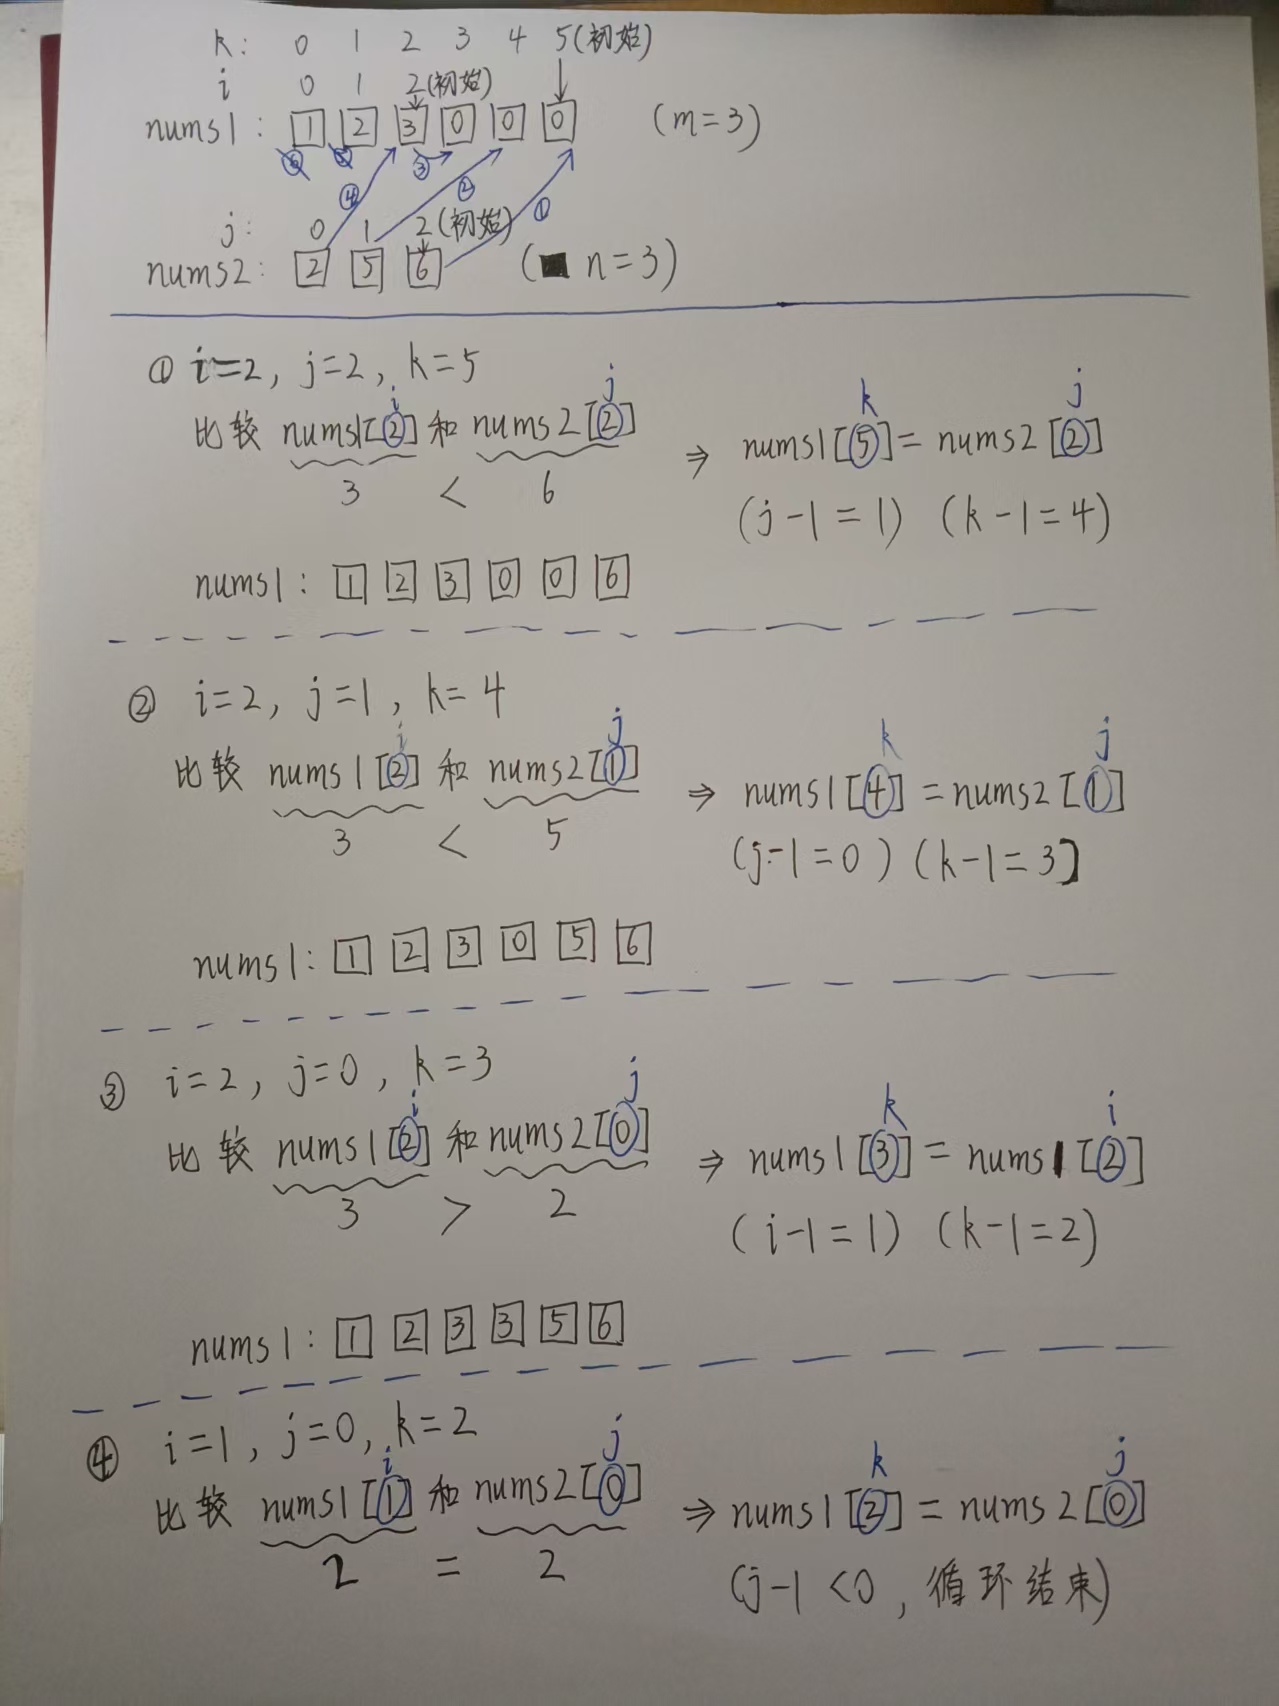 k: 0 1 2 3 4 5(初始)
i 0 1 2(初始)
nums1: 1 2 3 0 0 0 (m=3)
④ ③ ② ①
j: 0 1 2(初始)
nums2: 2 5 6 (n=3)
① i=2, j=2, k=5
i j k j
比较 nums1[2] 和 nums2[2] ⇒ nums1[5]=nums2[2]
3 < 6 (j-1=1) (k-1=4)
nums1: 1 2 3 0 0 6
② i=2, j=1, k=4
i j k j
比较 nums1[2] 和 nums2[1] ⇒ nums1[4]=nums2[1]
3 < 5 (j-1=0) (k-1=3]
nums1: 1 2 3 0 5 6
③ i=2, j=0, k=3
i j k i
比较 nums1[2] 和 nums2[0] ⇒ nums1[3]=nums1[2]
3 > 2 (i-1=1) (k-1=2)
nums1: 1 2 3 3 5 6
④ i=1, j=0, k=2
i j k j
比较 nums1[1] 和 nums2[0] ⇒ nums1[2]=nums2[0]
2 = 2 (j-1<0, 循环结束)